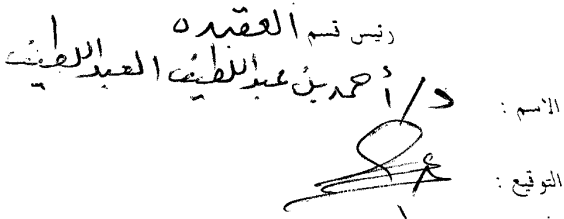 رئيس قسم العقيده
الاسم : د/ أحمد بن عبداللطيف العبداللطيف
التوقيع :